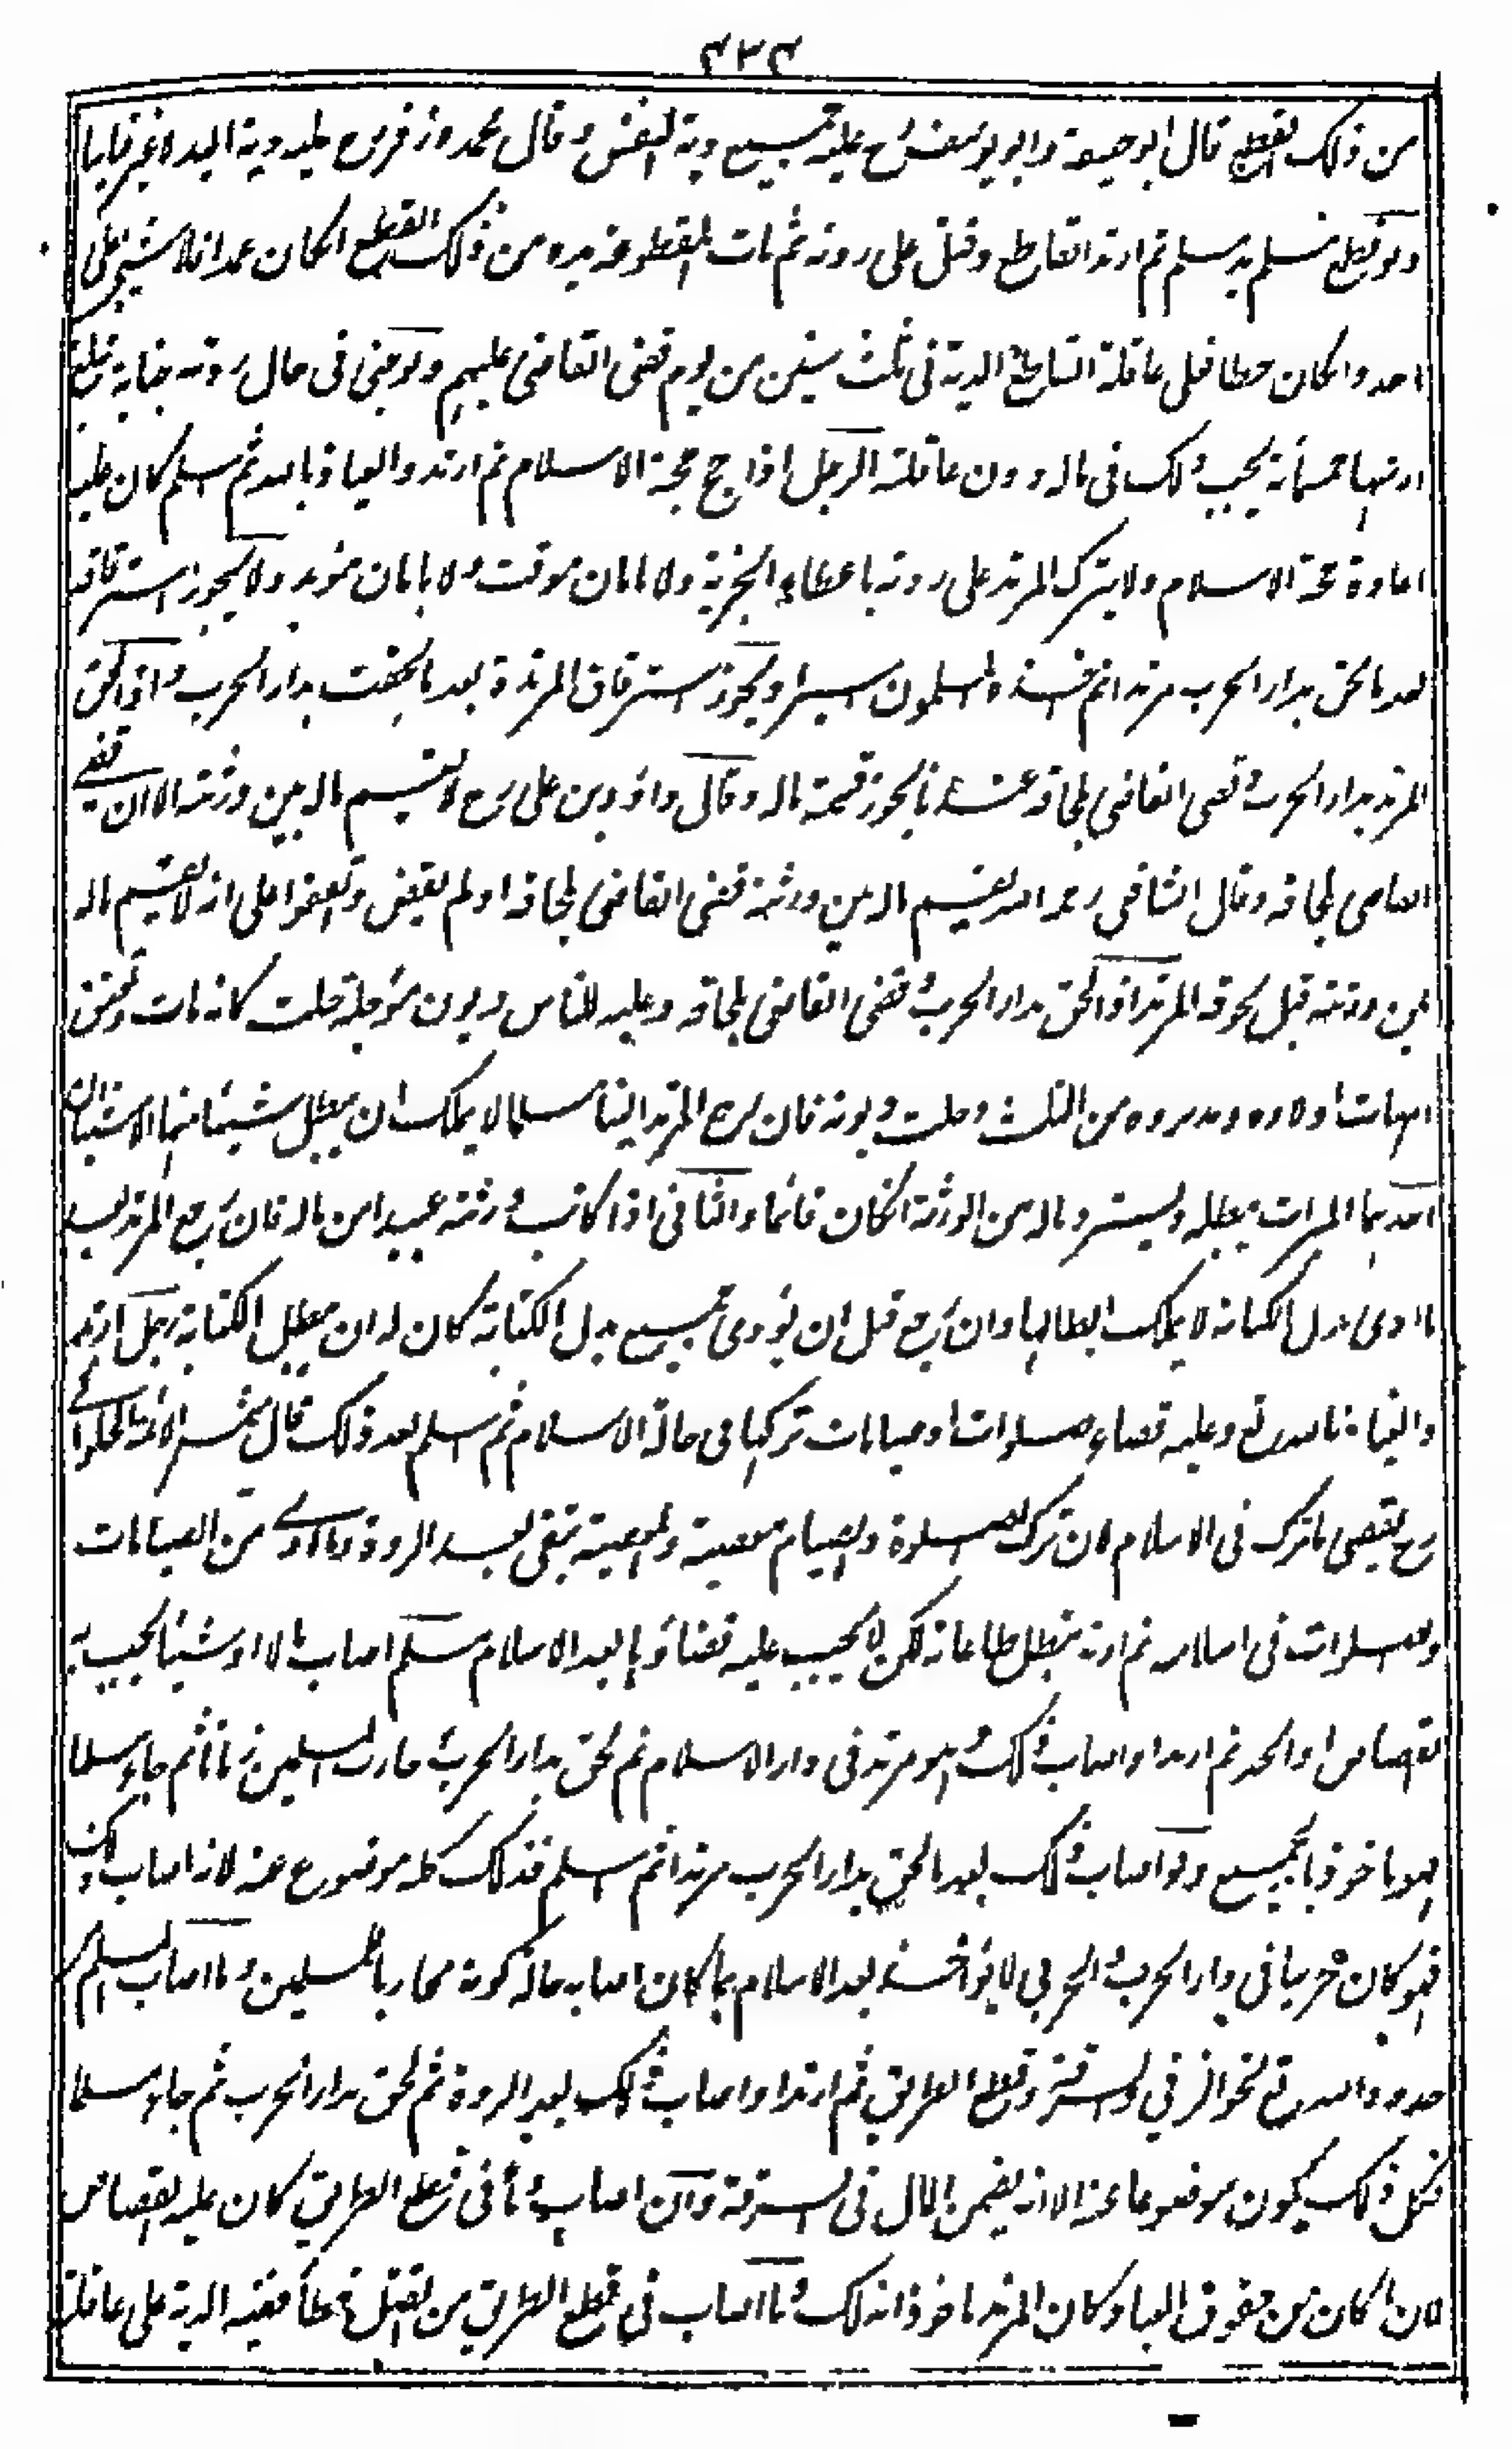 ٤٢٤
من ذلك القطع قال ابو حنيفة وابو يوسف رح عليه جميع دية النفس وقال محمد وزفر رح عليه دية اليد لا غير
ولو قطع مسلم يد مسلم ثم ارتد القاطع وقتل على ردته ثم مات المقطوعة يده من ذلك القطع انكان عمدا فلا شيئ على
احد وانكان خطا فعلى عاقلة القاطع الدية فى ثلث سنين من يوم قضى القاضى عليهم ولو جنى فى حال ردته جناية
ارشها خمسمائة يجب ذلك فى ماله دون عاقلته الرجل اذا حج حجة الاسلام ثم ارتد والعياذ بالله ثم اسلم كان عليه
اعادة حجة الاسلام ولا يترك المرتد على ردته باعطاء الجزية ولا بامان موقت ولا بامان مؤبد ولا يجوز استرقاقه
بعد ما لحق بدار الحرب مرتدا ثم اخذه المسلمون اسيرا ويجوز استرقاق المرتدة بعد ما لحقت بدار الحرب واذا لحق
المرتد بدار الحرب وقضى القاضى بلحاقه عندنا يجوز قسمة ماله وقال داؤد بن على رح لا يقسم ماله بين ورثته الا ان يقضے
القاضى بلحاقه وقال الشافعى رحمه الله يقسم ماله بين ورثته قضى القاضى بلحاقه او لم يقض واتفقوا على انه لا يقسم ماله
بين ورثته قبل لحوقه المرتد اذا لحق بدار الحرب وقضى القاضى بلحاقه وعليه للناس ديون مؤجلة حلت كانه مات وتعتق
امهات اولاده ومدبروه من الثلث وحلت ديونه فان رجع المرتد الينا مسلما لا يملك ان يبطل شيئا منها الا شيئان
احدهما الميراث يبطله ويسترد ماله من الورثة انكان قائما والثانى اذا كاتب ورثته عبيدا من ماله فان رجع المرتد بعد
ما ادى بدل الكتابة لا يملك ابطالها وان رجع قبل ان يؤدى جميع بدل الكتابة كان له ان يبطل الكتابة رجل ارتد
والعياذ بالله تع وعليه قضاء صلوات او صيامات تركها فى حالة الاسلام ثم اسلم بعد ذلك قال شمس الائمة الحلوائے
رح يقضى ما ترك فى الاسلام لان ترك الصلوة والصيام معصية والمعصية تبقى بعد الردة وما ادى من الصيامات
والصلوات فى اسلامه ثم ارتد تبطل طاعاته لكن لا يجب عليه قضاؤها بعد الاسلام مسلم اصاب مالا او شيئا يجب به
القصاص او الحد ثم ارتد او اصاب ذلك وهو مرتد فى دار الاسلام ثم لحق بدار الحرب وحارب المسلمين زمانا ثم جاء مسلما
فهو ماخوذ بالجميع ولو اصاب ذلك بعد ما لحق بدار الحرب مرتدا ثم اسلم فذلك كله موضوع عنه لانه اصاب ذلك
وهو كان حربيا فى دار الحرب والحربى لا يؤاخذ بعد الاسلام بما كان اصابه حالة كونه محاربا للمسلمين وما اصاب المسلم من
حدود الله تع نحو الزنى والسرقة وقطع الطريق ثم ارتد او اصاب ذلك بعد الردة ثم لحق بدار الحرب ثم جاء مسلما
فكل ذلك يكون موضوعا عنه الا انه يضمن المال فى السرقة وان اصاب دما فى قطع الطريق كان عليه القصاص
لان ما كان من حقوق العباد كان المرتد ماخوذا بذلك وما اصاب فى قطع الطريق من القتل خطأ ففيه الدية على عاقلته